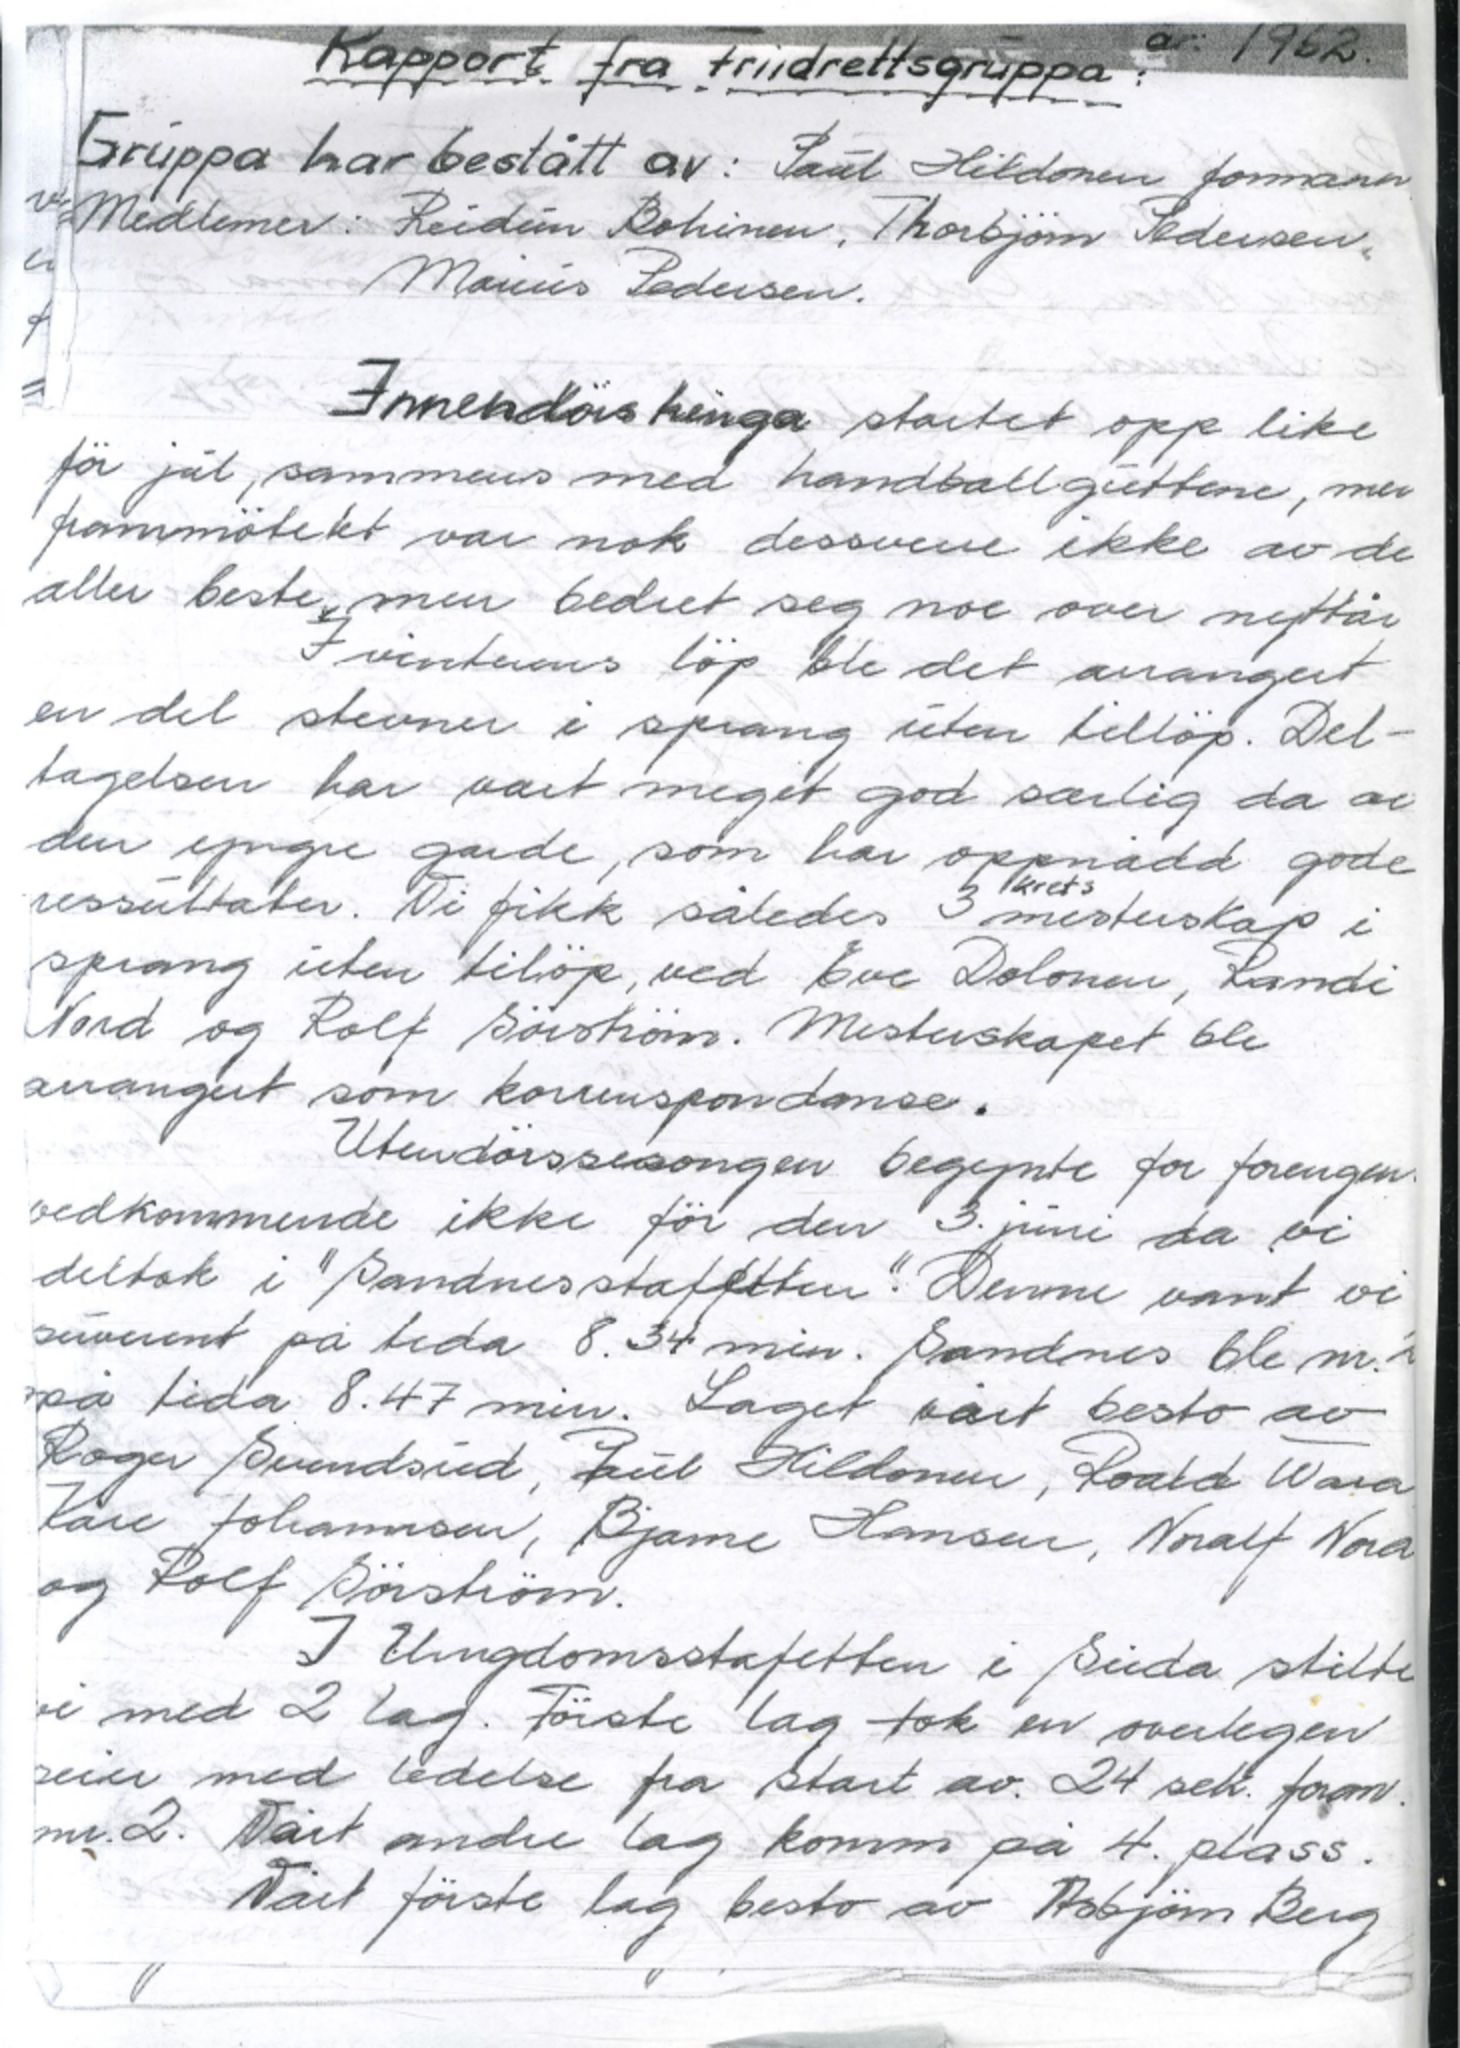 Rapport fra friidrettsgruppa: år: 1962.
Gruppa har bestått av: Paul Hildonen formann
Medlemer: Reidun Bohinen, Thorbjörn Pedersen,
Marius Pedersen.
Innendörs treninga startet opp like
för jul, sammens med handballguttene, men
frammötekt var nok dessverre ikke av de
aller beste, men bedret seg noe over nyttår
I vinterens löp ble det arrangert
en del stevner i sprang uten tillöp. Del-
tagelsen har vært meget god særlig da av
den yngre garde, som har oppnådd gode
ressultater. Vi fikk således 3 kretsmesterskap i
sprang uten tilöp, ved Eve Dolonen, Randi
Nord og Rolf Sörström. Mesterskapet ble
arrangert som korrenspondanse.
Utendörssesongen begynte for forengen
vedkommende ikke för den 3. juni da vi
deltok i "Sandnesstaffetten". Denne vant vi
suverent på tida 8.34 min. Sandnes ble nr. 2
på tida 8.47 min. Laget vårt besto av
Roger Svendsud, Paul Hildonen, Roald Wara
Kåre Johannsen, Bjarne Hansen, Noralf Nord
og Rolf Sörström.
I Ungdomsstafetten i Suda stilte
vi med 2 lag. Förste lag tok en overlegen
seier med ledelse fra start av. 24 sek. foran
nr. 2. Vårt andre lag komm på 4. plass.
Vårt förste lag besto av Asbjörn Berg